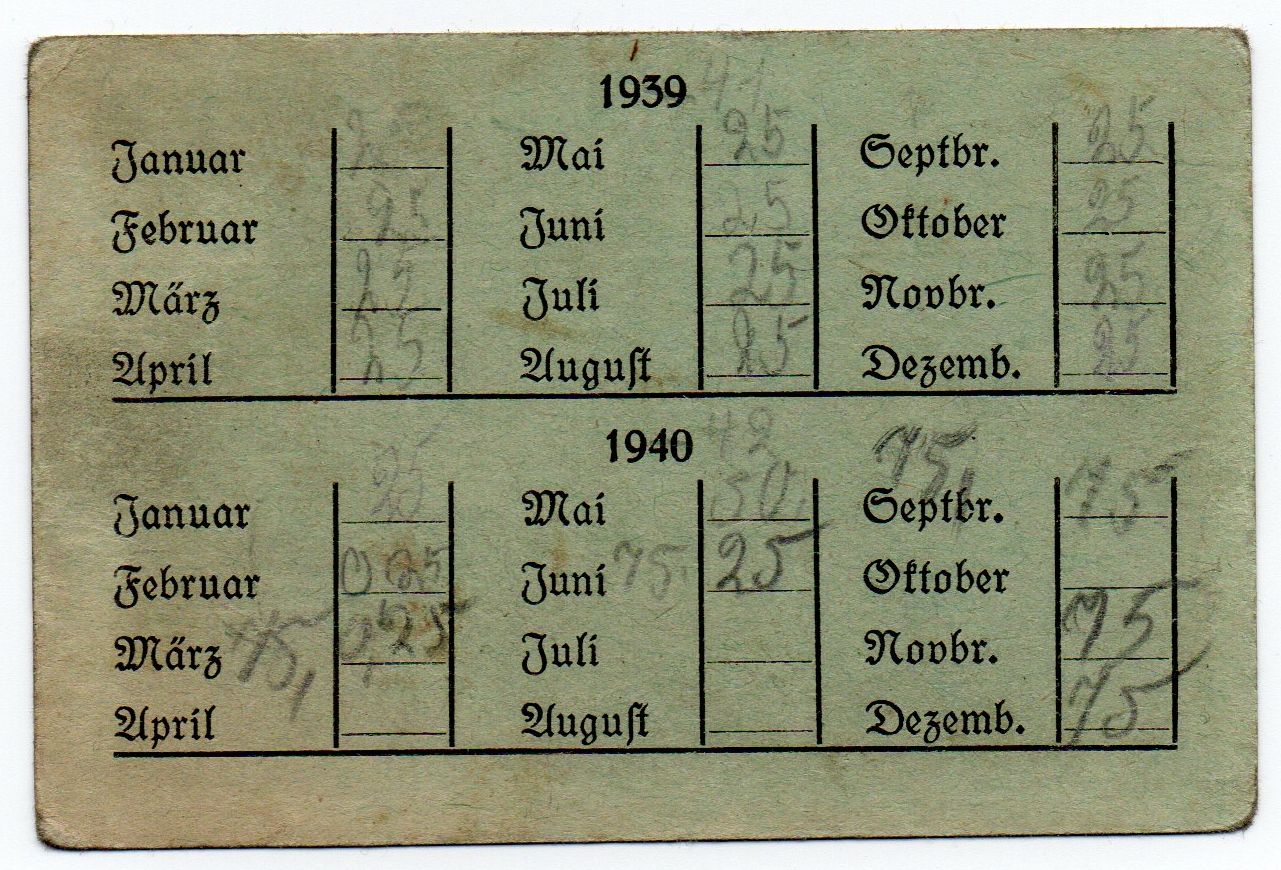 1939 41
Januar 25 Mai 25 Septbr. 25
Februar 25 Juni 25 Oktober 25
März Juli 25 Novbr. 25
April 25 August 25 Dezemb. 25
1940 42
Januar 25 Mai 50, Septbr. 75, 75
Februar 0 25 Juni 75 25 Oktober
März 75, 0,25 Juli Novbr. 75
April August Dezemb. 75